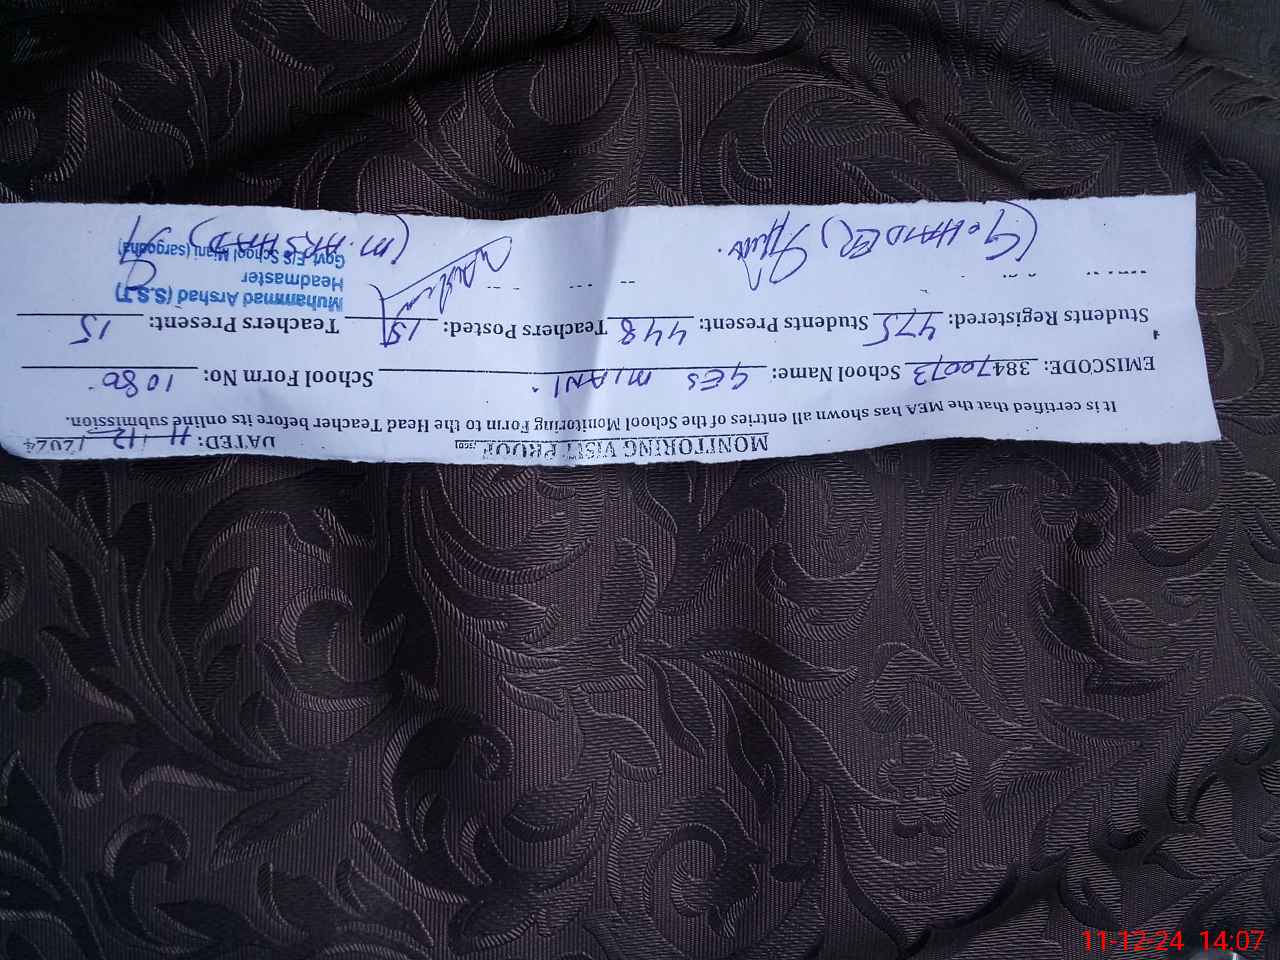 MONITORING VISIT PROOF DATED: 11-12-/2024
It is certified that the MEA has shown all entries of the School Monitoring Form to the Head Teacher before its online submission.
EMISCODE: 38470073 School Name: GES MIANI. School Form No: 1080
Students Registered: 475 Students Present: 448 Teachers Posted: 15 Teachers Present: 15
Muhammad Arshad (S.S.T)
Headmaster
Govt. E/S School Miani (sargodha)
(M. ARSHAD)
11-12-24 14:07